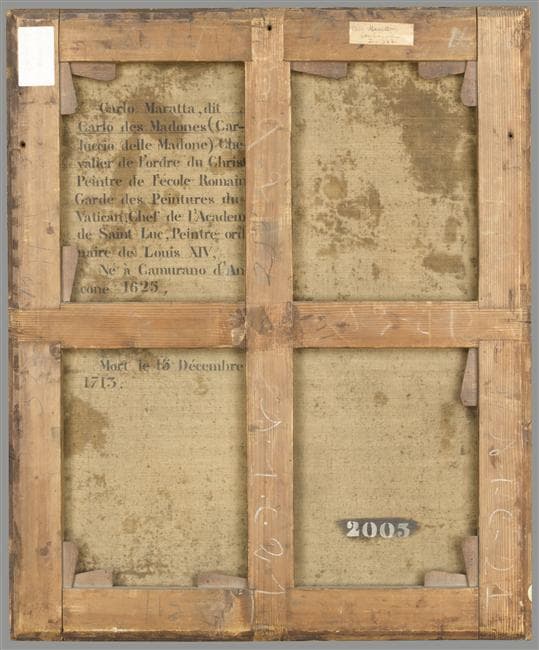 Carlo Maratta, dit
Carlo des Madones (Car-
luccio delle Madone) Che-
valier de l'ordre du Christ
Peintre de l'école Romain
Garde des Peintures du
Vatican, Chef de l'Academ
de Saint Luc, Peintre ord
naire de Louis XIV.
Né à Camurano d'An
cone 1625.
Mort le 15 Décembre
1713.
2003